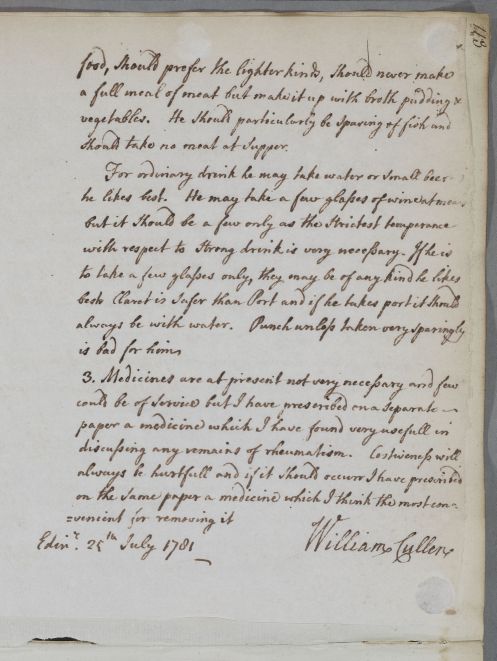 food, should prefer the lighter kinds, should never make
a full meal of meat but make it up with broth pudding &
vegetables. He should particularly be sparing of fish and
should take no meat at supper.
For ordinary drink he may take water or small beer
he likes best. He may take a few glasses of wine at mea
but it should be a few only as the strictest temperance
with respect to strong drink is very necessary. If he is
to take a few glasses only, they may be of any kind he likes
best Claret is safer than Port and if he takes port it should
always be with water. Punch unless taken very sparingly
is bad for him
3. Medicines are at present not very necessary and few
could be of service but I have prescribed on a separate
paper a medicine which I have found very usefull in
discussing any remains of rheumatism. Costiveness will
always be hurtfull and if it should occurr I have prescribed
on the same paper a medicine which I think the most con-
=venient for removing it
Edinr. 25th July 1781 William Cullen